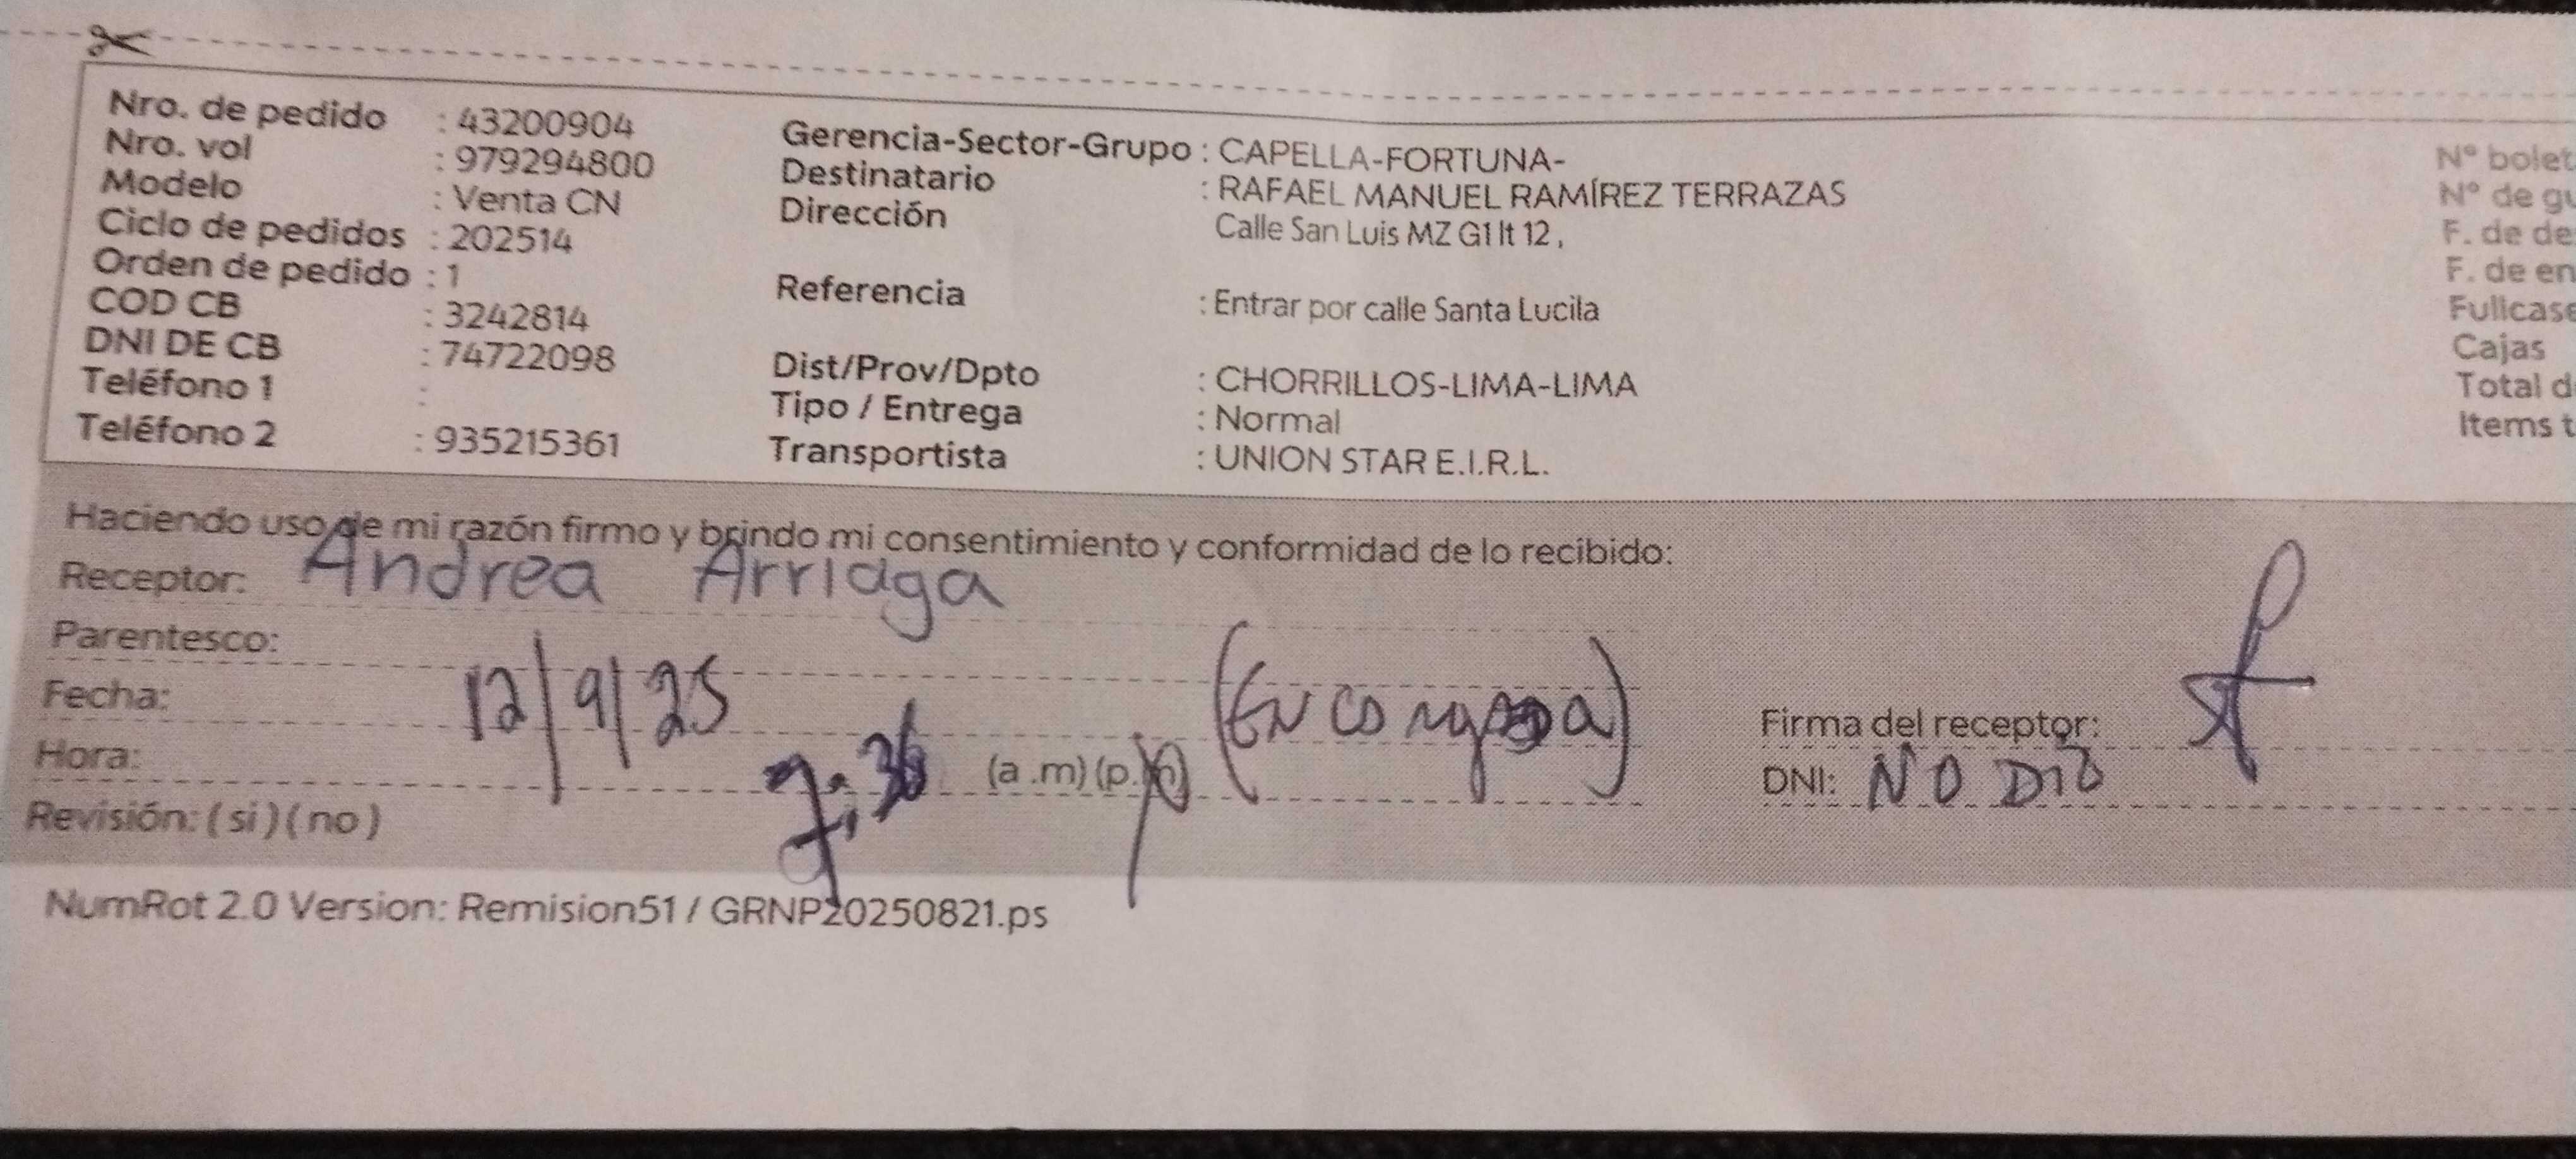 Nro. de pedido : 43200904
Nro. vol : 979294800
Modelo : Venta CN
Ciclo de pedidos : 202514
Orden de pedido : 1
COD CB : 3242814
DNI DE CB : 74722098
Teléfono 1 :
Teléfono 2 : 935215361
Gerencia-Sector-Grupo : CAPELLA-FORTUNA-
Destinatario : RAFAEL MANUEL RAMÍREZ TERRAZAS
Dirección Calle San Luis MZ G1 lt 12 ,
Referencia : Entrar por calle Santa Lucila
Dist/Prov/Dpto : CHORRILLOS-LIMA-LIMA
Tipo / Entrega : Normal
Transportista : UNION STAR E.I.R.L.
N° bolet
N° de gu
F. de de
F. de en
Fullcase
Cajas
Total d
Items t
Haciendo uso de mi razón firmo y brindo mi consentimiento y conformidad de lo recibido:
Receptor: Andrea Arriaga
Parentesco:
Fecha: 12/9/25
Hora: (a .m) (p.m)
Revisión: ( si ) ( no )
Firma del receptor:
DNI: NO DIO
NumRot 2.0 Version: Remision51 / GRNP20250821.ps